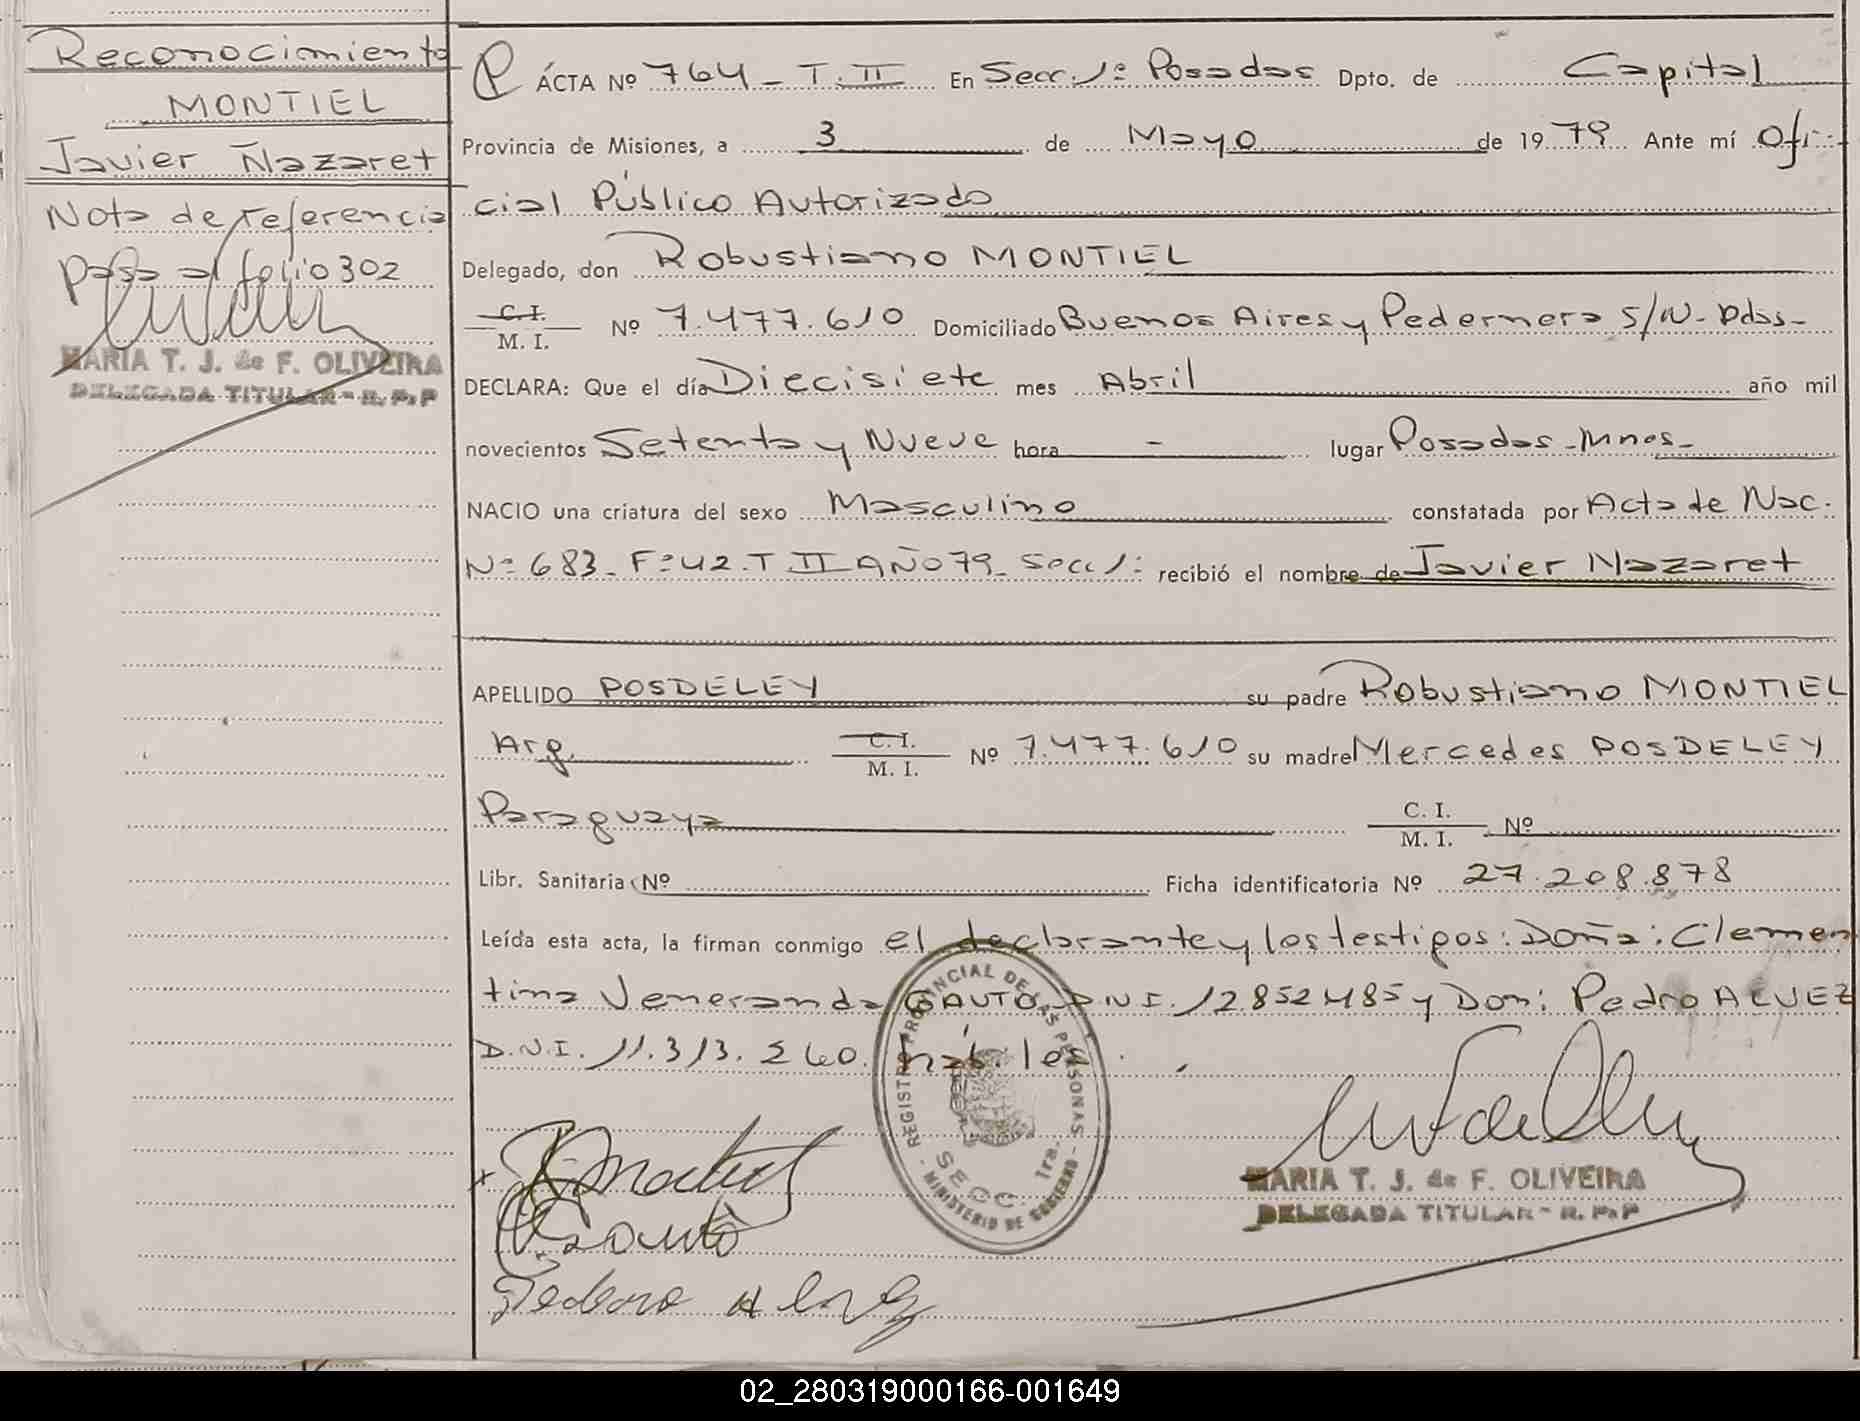 Reconocimiento
MONTIEL
Javier Nazaret
Nota de referencia
pasa al folio 302
MARIA T. J. de F. OLIVEIRA
DELEGADA TITULAR - R. P. P
ÁCTA Nº 764 - T. II En Secc. 1º Posadas Dpto. de Capital
Provincia de Misiones, a 3 de Mayo de 1979 Ante mí Ofi-
cial Público Autorizado
Delegado, don Robustiano MONTIEL
C.I.
M. I. Nº 7.477.610 Domiciliado Buenos Aires y Pedernera S/N - Pdas -
DECLARA: Que el día Diecisiete mes Abril año mil
novecientos Setenta y Nueve hora - lugar Posadas - Mnes -
NACIO una criatura del sexo Masculino constatada por Acta de Nac.
Nº 683 - Fº 42 - T II AÑO 79 - Secc 1º recibió el nombre de Javier Nazaret
APELLIDO POSDELEY su padre Robustiano MONTIEL
Arg. C.I.
M. I. Nº 7.477.610 su madre Mercedes POSDELEY
Paraguaya C. I.
M. I. Nº
Libr. Sanitaria Nº Ficha identificatoria Nº 27.208.878
Leída esta acta, la firman conmigo el declarante y los testigos: Doña: Clemen
tina Veneranda GAUTO D.N.I. 12852485 y Don: Pedro ALVEZ
D.N.I. 11.313.260. Háb.les.
REGISTRO PROVINCIAL DE LAS PERSONAS
SECC. 1ra.
- MINISTERIO DE GOBIERNO -
Gauto
MARIA T. J. de F. OLIVEIRA
DELEGADA TITULAR - R. P. P
02_280319000166-001649